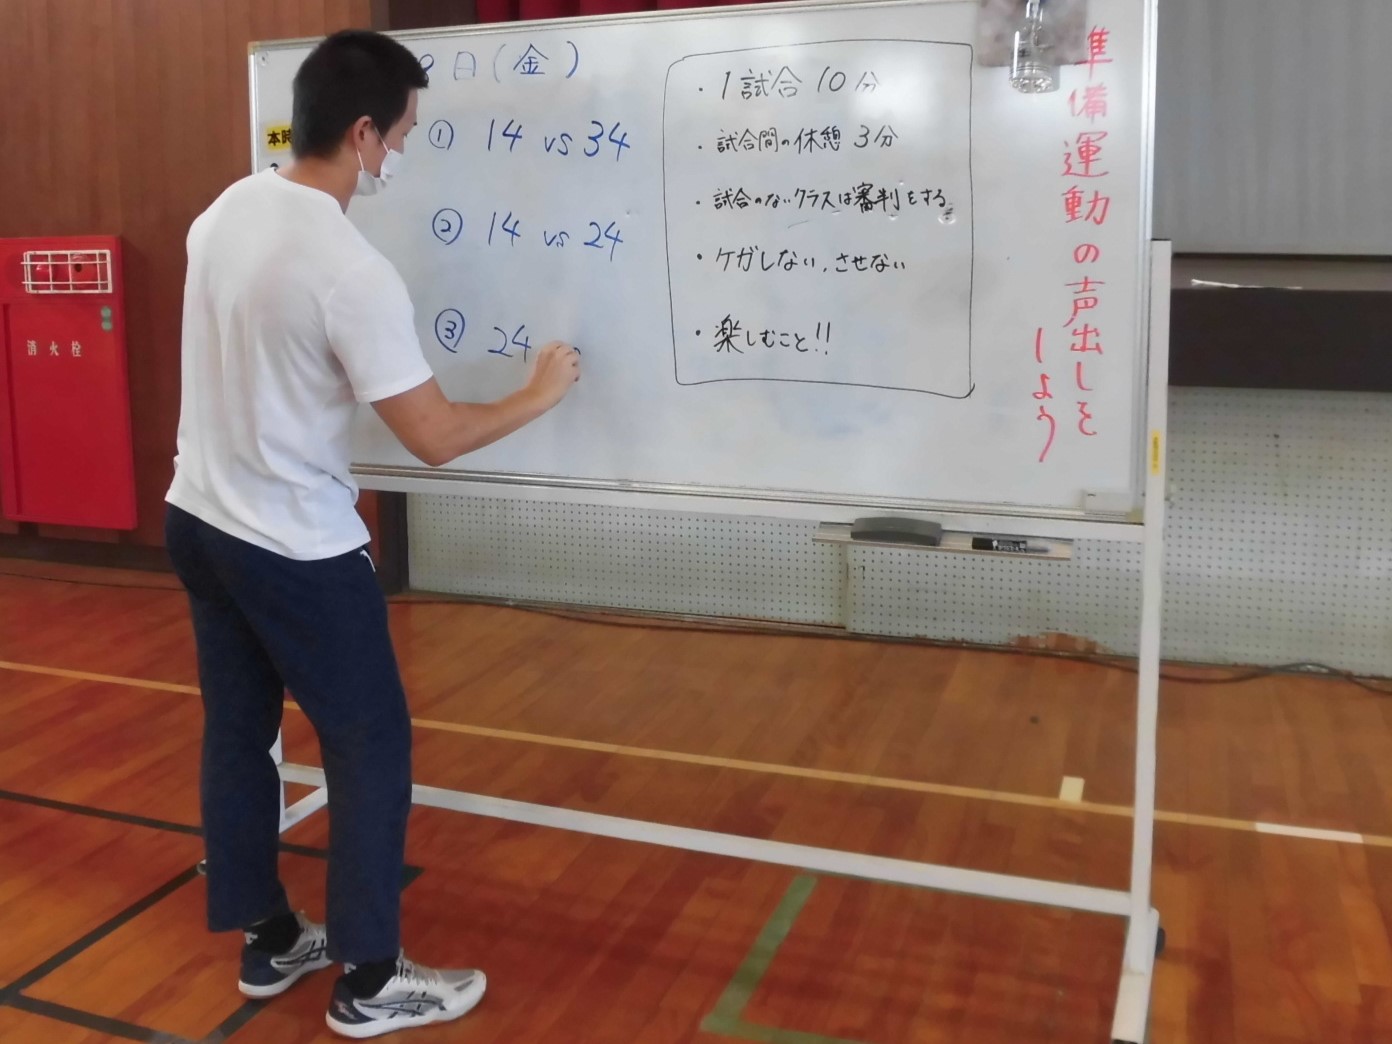 日(金)
本時
① 14 vs 34
② 14 vs 24
③ 24
・1試合 10分
・試合間の休憩 3分
・試合のないクラスは審判をする
・ケガしない、させない
・楽しむこと!!
準備運動の声出しを
しよう
消火栓